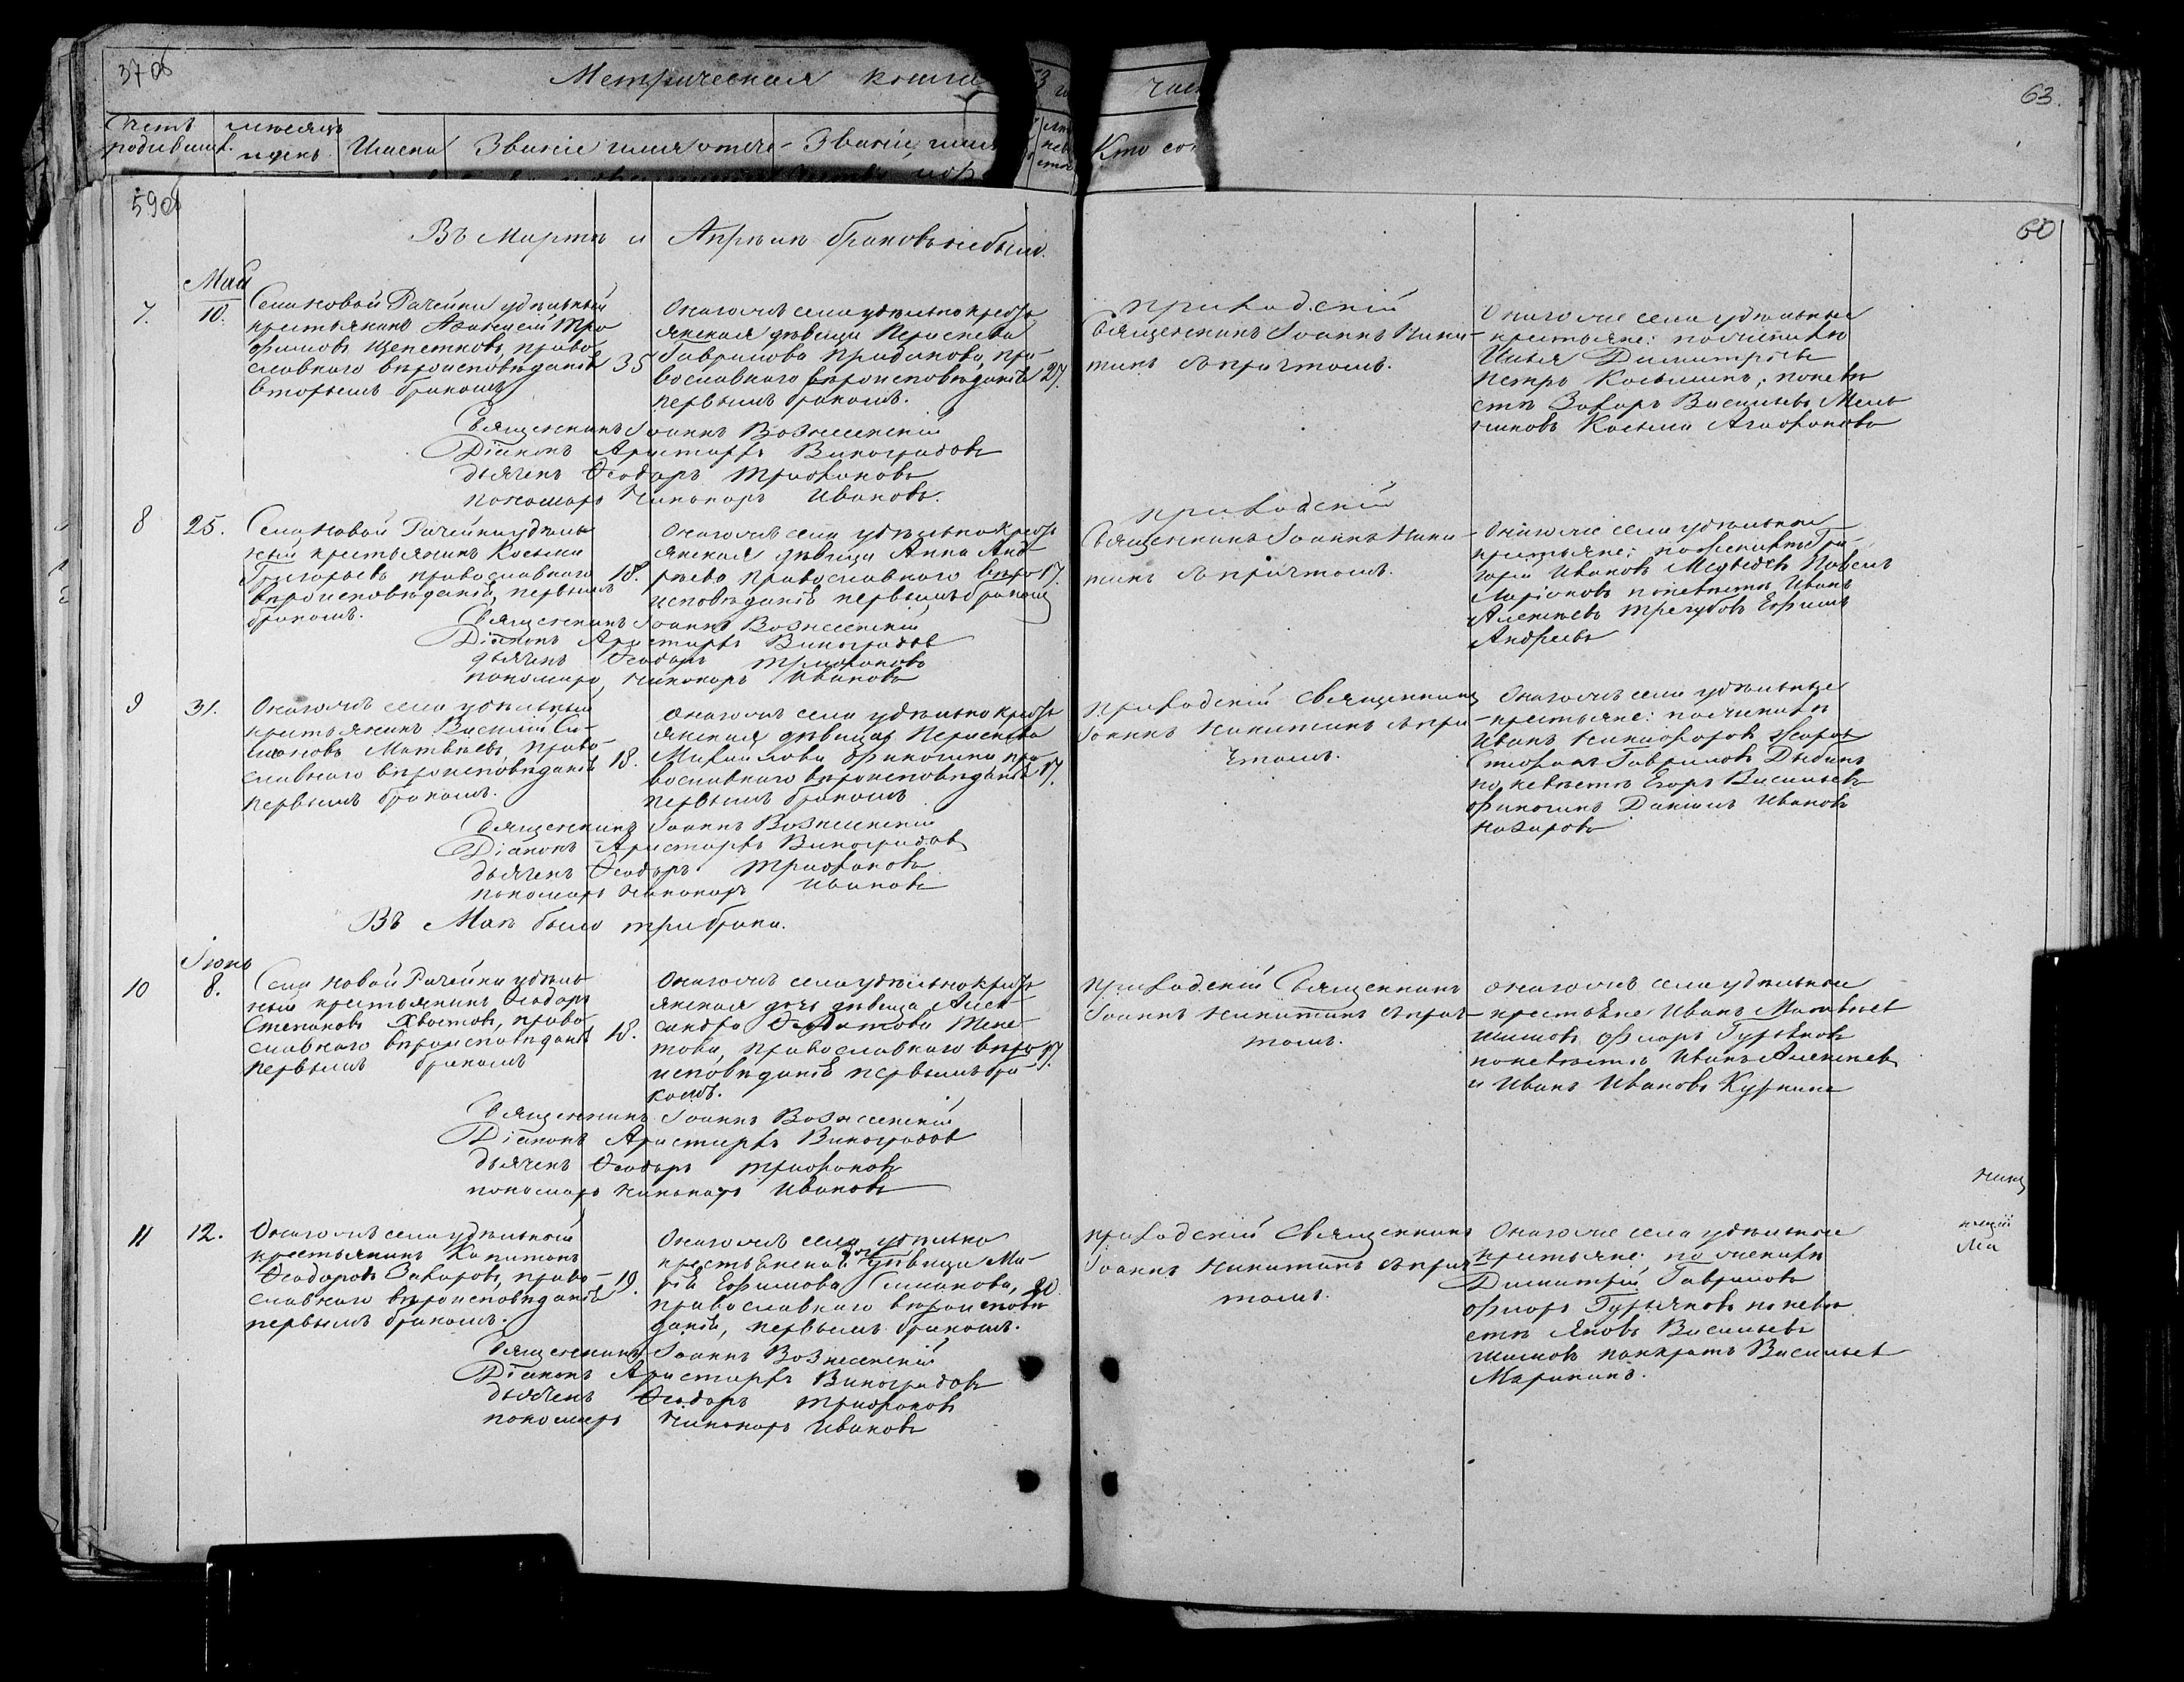 370б
Метрическая книга
53 г
час
63.
Счетъ родившихся.
мѣсяцъ и день.
Имена
Званіе имя отче-
Званіе, имя
Кто сов
590б
60
Въ Мартѣ и Апрѣлѣ браковъ небыло.
Май
7. 10.
Села Новой Рачейки удѣльный
крестьянинъ Алексѣй Тро
фимовъ Щепетковъ, право-
славнаго вѣроисповѣданія 35
вторымъ бракомъ
Онагожъ села удѣльно крестьь
янская дѣвица Параскева
Гаврилова Приданова, пра-
вославнаго вѣроисповѣданія 27.
первымъ бракомъ.
Приходскій
Священникъ Іоаннъ Ники-
тинъ съ причтомъ.
Онагоже села удѣльные
крестьяне: по женихѣ
Илья Димитріевъ
Петръ Косьминъ; по невѣ
стѣ Захаръ Васильевъ Мель
никовъ Косьма Агафоновъ
Священникъ Іоаннъ Вознесенскій
Діаконъ Аристархъ Виноградовъ
дьячекъ Ѳеодоръ Трифоновъ
пономарь Никаноръ Ивановъ.
8 25.
Села Новой Рачейки удѣль
ный крестьянинъ Косьма
Григорьевъ православнаго 18.
вѣроисповѣданія, первымъ
бракомъ.
Онагожъ села удѣльно крестьь
янская дѣвица Анна Анд-
рѣева православнаго вѣро 17.
исповѣданія первымъ бракомъ
Приходскій
Священникъ Іоаннъ Ники-
тинъ съ причтомъ.
Онагоже села удѣльные
крестьяне: по женихѣ Гри-
горій Ивановъ Медвѣдевъ Павелъ
Ларіоновъ по невѣстѣ Иванъ
Алексѣевъ Трегубовъ Ефимъ
Андреевъ
Священникъ Іоаннъ Вознесенскій
Діаконъ Аристархъ Виноградовъ
дьячекъ Ѳеодоръ Трифоновъ
пономарь, Никаноръ Ивановъ
9 31.
Онагожъ села удѣльный
крестьянинъ Василій Си-
моновъ Матвѣевъ, право-
славнаго вѣроисповѣданія 18.
первымъ бракомъ.
Онагожъ села удѣльно крестьь
янская дѣвица Параскева
Михайлова Финогина пра
вославнаго вѣроисповѣданія 17.
первымъ бракомъ
Приходскій Священникъ
Іоаннъ Никитинъ съ при-
чтомъ.
Онагожъ села удѣльные
крестьяне: по женихѣ
Иванъ Никифоровъ
Стефанъ Гавриловъ Дыбинъ
по невѣстѣ Егоръ Васильевъ
Финогинъ Даніилъ Ивановъ
Назаровъ
Священникъ Іоаннъ Вознесенскій
Діаконъ Аристархъ Виноградовъ
дьячекъ Ѳеодоръ Трифоновъ
пономарь Никаноръ Ивановъ
Въ Маѣ было три брака.
Іюнь
10 8.
Села Новой Рачейки удѣль
ный крестьянинъ Ѳеодоръ
Степановъ Хвостовъ, право
славнаго вѣроисповѣданія 18.
первымъ бракомъ
Онагожъ села удѣльно крестьь
янская дочь дѣвица Алек-
сандра
това, православнаго вѣро 17.
исповѣданія первымъ бра-
комъ.
Приходскій Священникъ
Іоаннъ Никитинъ съ прич-
томъ.
Онагожъ села удѣльные
крестьяне Иванъ Матвѣевъ
Шишовъ Флоръ Гурьяновъ
по невѣстѣ Иванъ Алексѣевъ
и Иванъ Ивановъ Куркинъ
Священникъ Іоаннъ Вознесенскій
Діаконъ Аристархъ Виноградовъ
дьячекъ Ѳеодоръ Трифоновъ
пономарь Никаноръ Ивановъ
11 12.
Онагожъ села удѣльный
крестьянинъ Капитонъ
Ѳеодоровъ Захаровъ, право-
славнаго вѣроисповѣданія 19.
первымъ бракомъ.
Онагожъ села удѣльно
крестьянская дочь дѣвица Ма-
рія Ефимова Симакова, 20.
православнаго вѣроисповѣ
данія, первымъ бракомъ.
Приходскій Священникъ
Іоаннъ Никитинъ съ прич
томъ.
Онагоже села удѣльные
крестьяне: по женихѣ
Димитрій Гавриловъ
Флоръ Гурьяновъ по невѣ
стѣ Яковъ Васильевъ
Шишовъ Панкратъ Васильевъ
Марикинъ.
Священникъ Іоаннъ Вознесенскій
Діаконъ Аристархъ Виноградовъ
дьячекъ Ѳеодоръ Трифоновъ
пономарь Никаноръ Ивановъ